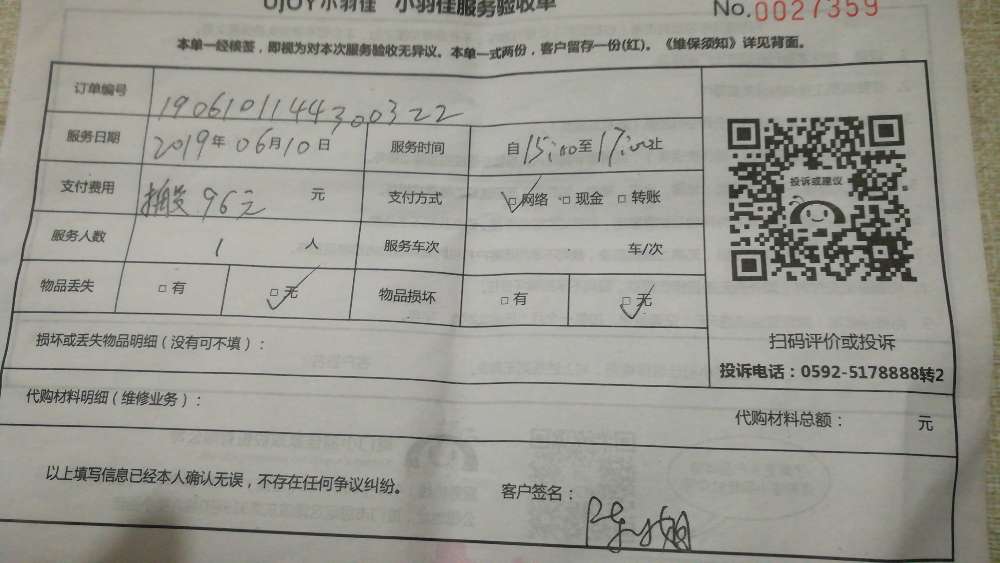 UJOY小羽佳 小羽佳服务验收单
No.0027359
本单一经核签，即视为对本次服务验收无异议。本单一式两份，客户留存一份(红)。《维保须知》详见背面。
订单编号 1906101144300322
服务日期 2019年06月10日 服务时间 自15:00至17:00止
支付费用 搬 96元 元 支付方式 □网络 □现金 □转账
服务人数 1 人 服务车次 车/次
物品丢失 □有 □无 物品损坏 □有 □无
投诉或建议
扫码评价或投诉
投诉电话：0592-5178888转2
损坏或丢失物品明细（没有可不填）：
代购材料明细（维修业务）：
代购材料总额： 元
以上填写信息已经本人确认无误，不存在任何争议纠纷。
客户签名：